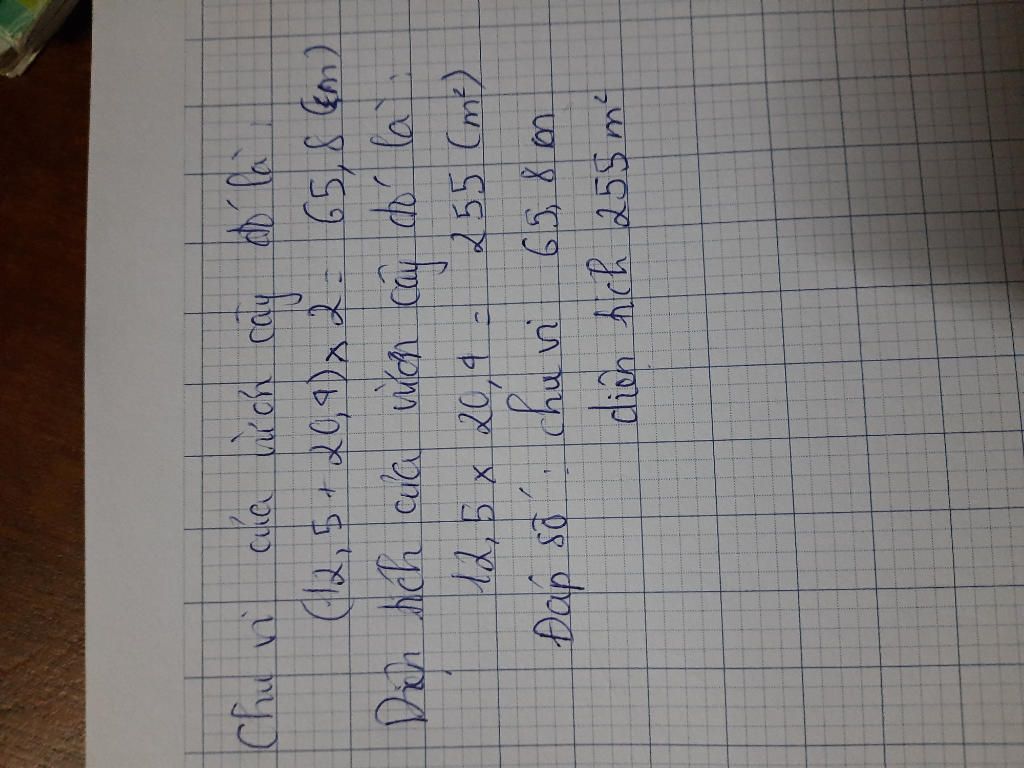 Chu vi của vườn cây đó là:
(12,5 + 20,4) x 2 = 65,8 (m)
Diện tích của vườn cây đó là:
12,5 x 20,4 = 255 (m²)
Đáp số: chu vi 65,8 m
diện tích 255 m²